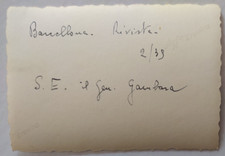 Barcellona. Rivista.
2/39
S. E. il Gen. Gambara